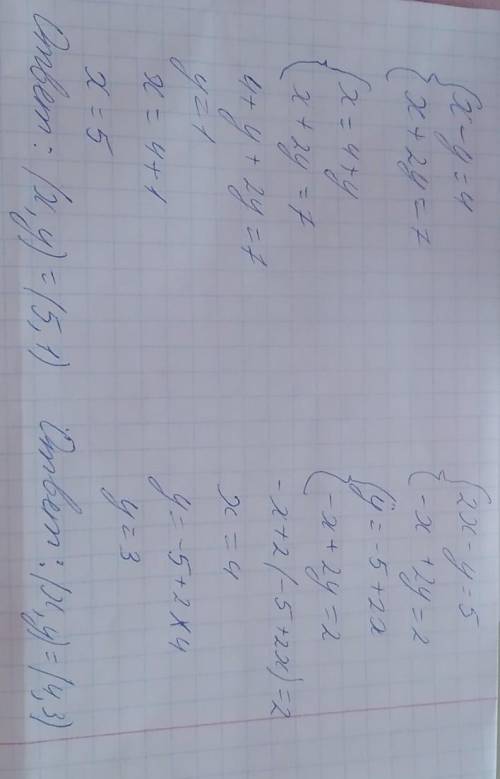 x - y = 4
x + 2y = 7
x = 4 + y
x + 2y = 7
4 + y + 2y = 7
y = 1
x = 4 + 1
x = 5
Ответ: (x, y) = (5, 1)
2x - y = 5
-x + 2y = 2
y = -5 + 2x
-x + 2y = 2
-x + 2(-5 + 2x) = 2
x = 4
y = -5 + 2 × 4
y = 3
Ответ: (x, y) = (4, 3)